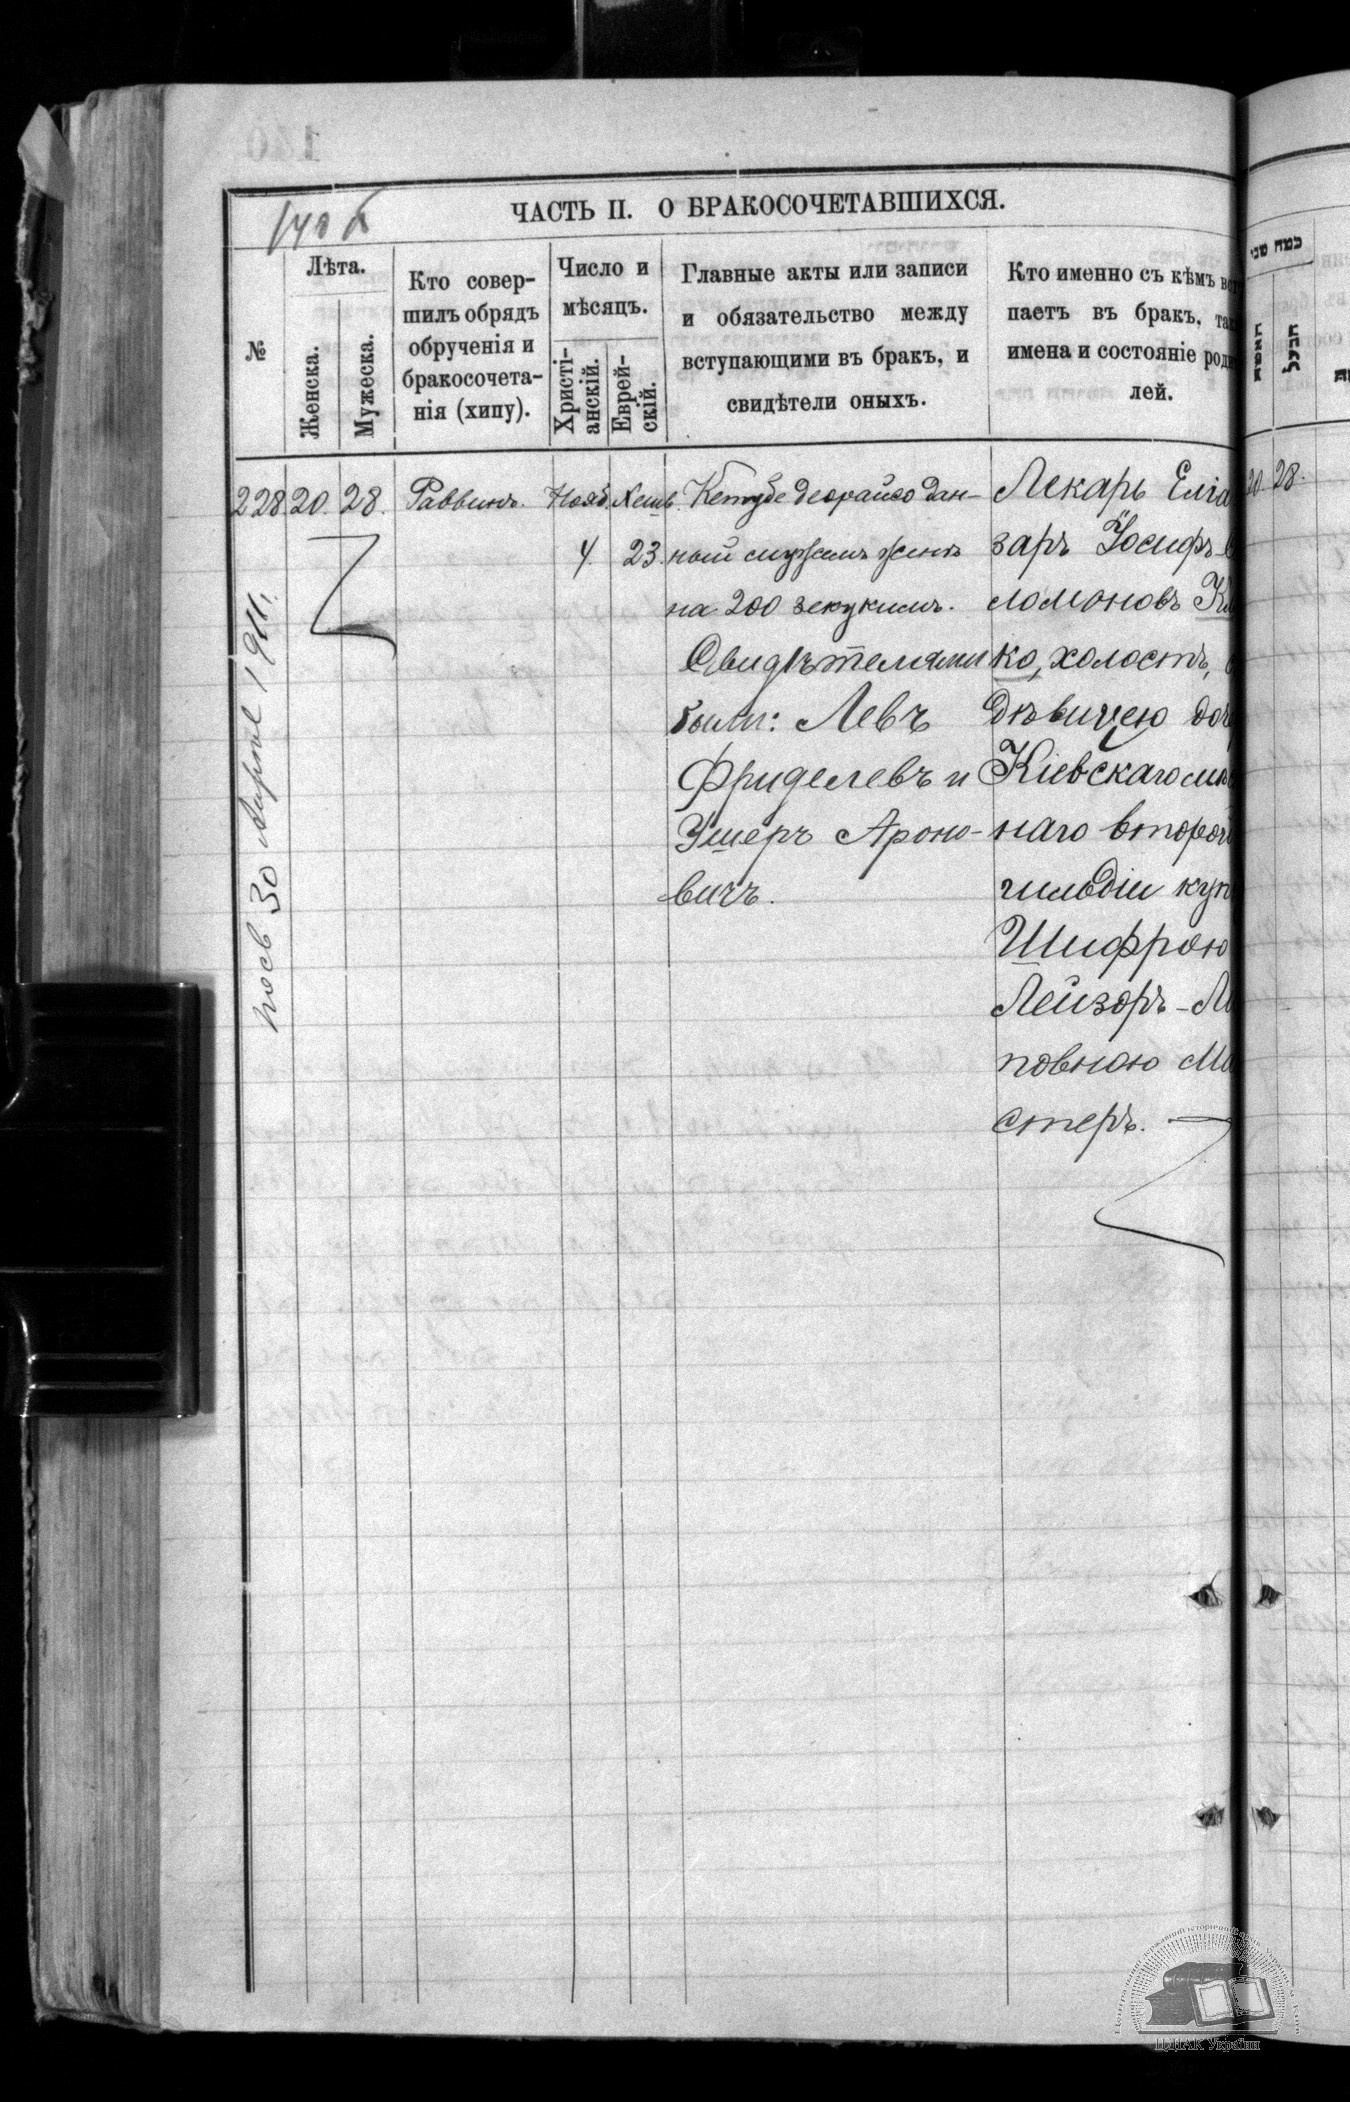 140
ЧАСТЬ II. О БРАКОСОЧЕТАВШИХСЯ.
№
Лѣта.
Женска.
Мужеска.
Кто совер-
шилъ обрядъ
обрученія и
бракосочета-
нія (хипу).
Число и
мѣсяцъ.
Христі-
анскій.
Еврей-
скій.
Главные акты или записи
и обязательство между
вступающими въ бракъ, и
свидѣтели оныхъ.
Кто именно съ кѣмъ вст
паетъ въ бракъ, так
имена и состояніе роди
лей.
228. 20. 28. Раввинъ. Нояб. Хешв.
4. 23.
Кетубе деорайсо дан-
ный мужемъ женѣ
на 200 зекукимъ.
Свидѣтелями
были: Левъ
Фриделевъ и
Ушеръ Ароно-
вичъ.
Лекарь Еліа
заръ Іосифъ-
ломоновъ
ко, холостъ,
дѣвицею доч
Кіевскаго
наго второй
гильдіи куп
Шифрою
Лейзоръ-Ли
повною Ма
стеръ.
30 Апрѣля 1911.
כמה שני
האשה
הבעל
20. 28.
ЦДІАК України